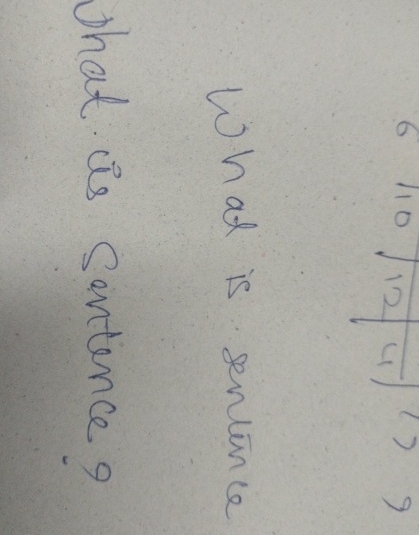 6 110 12 4 1 > 9
What is sentence
What is sentence ?